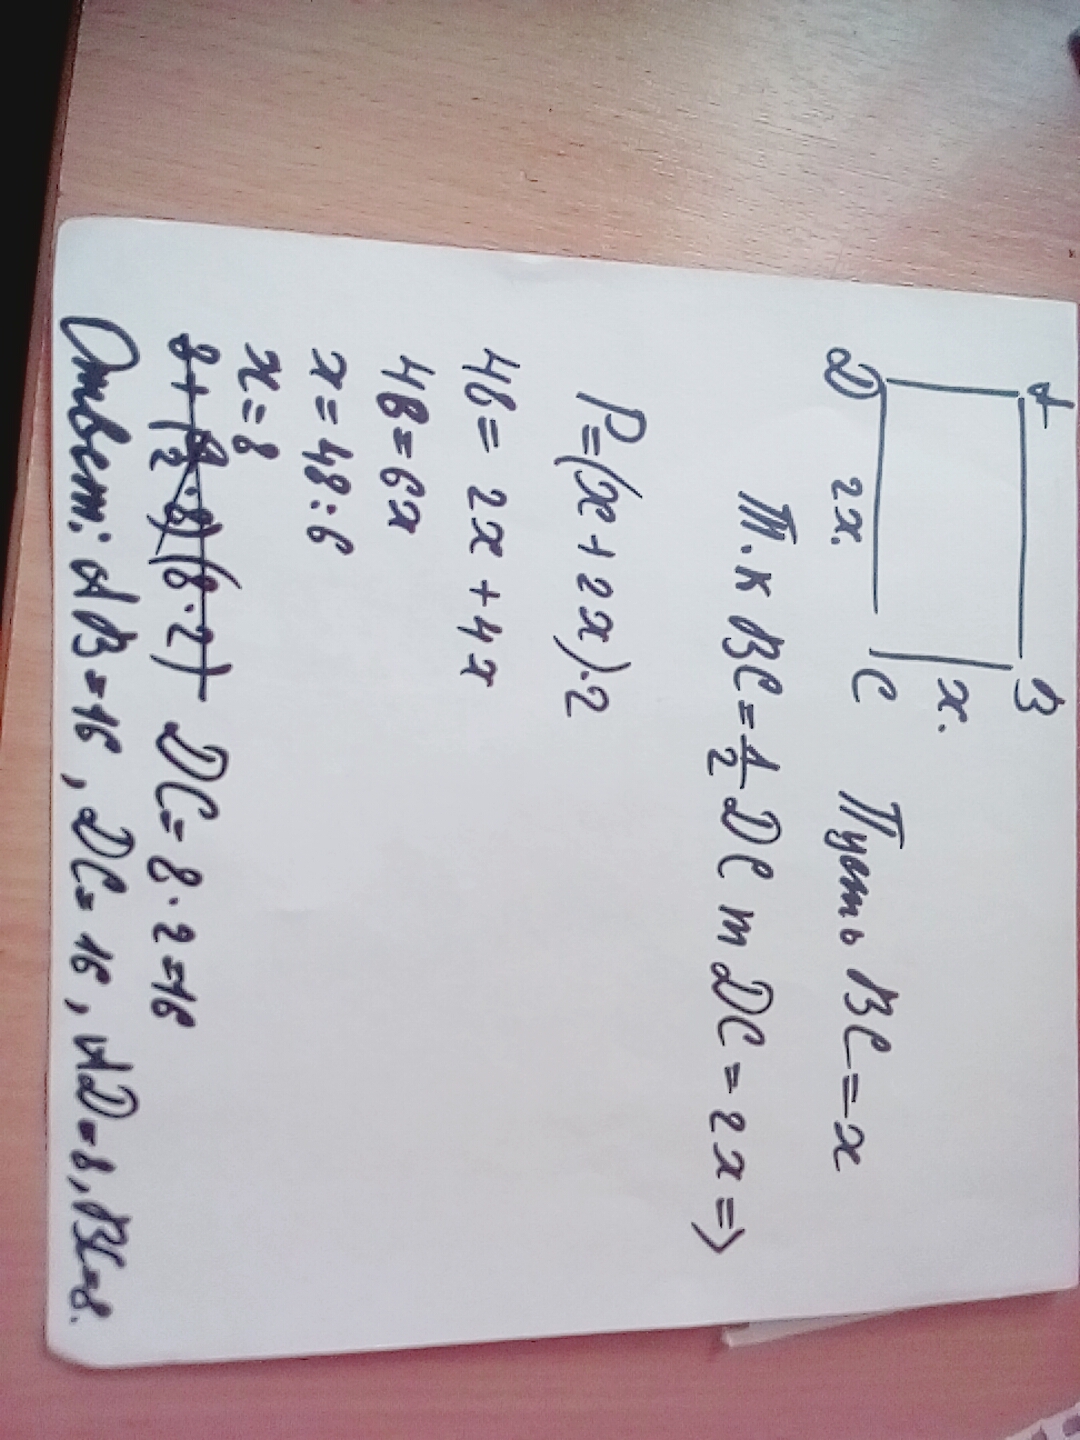 A B
x.
D 2x. C Пусть BC=x
Т.к BC=1/2 DC т DC=2x=>
P=(x+2x).2
48= 2x+4x
48=6x
x=48:6
x=8
DC=8.2=16
Ответ: AB=16, DC=16, AD=8, BC=8.